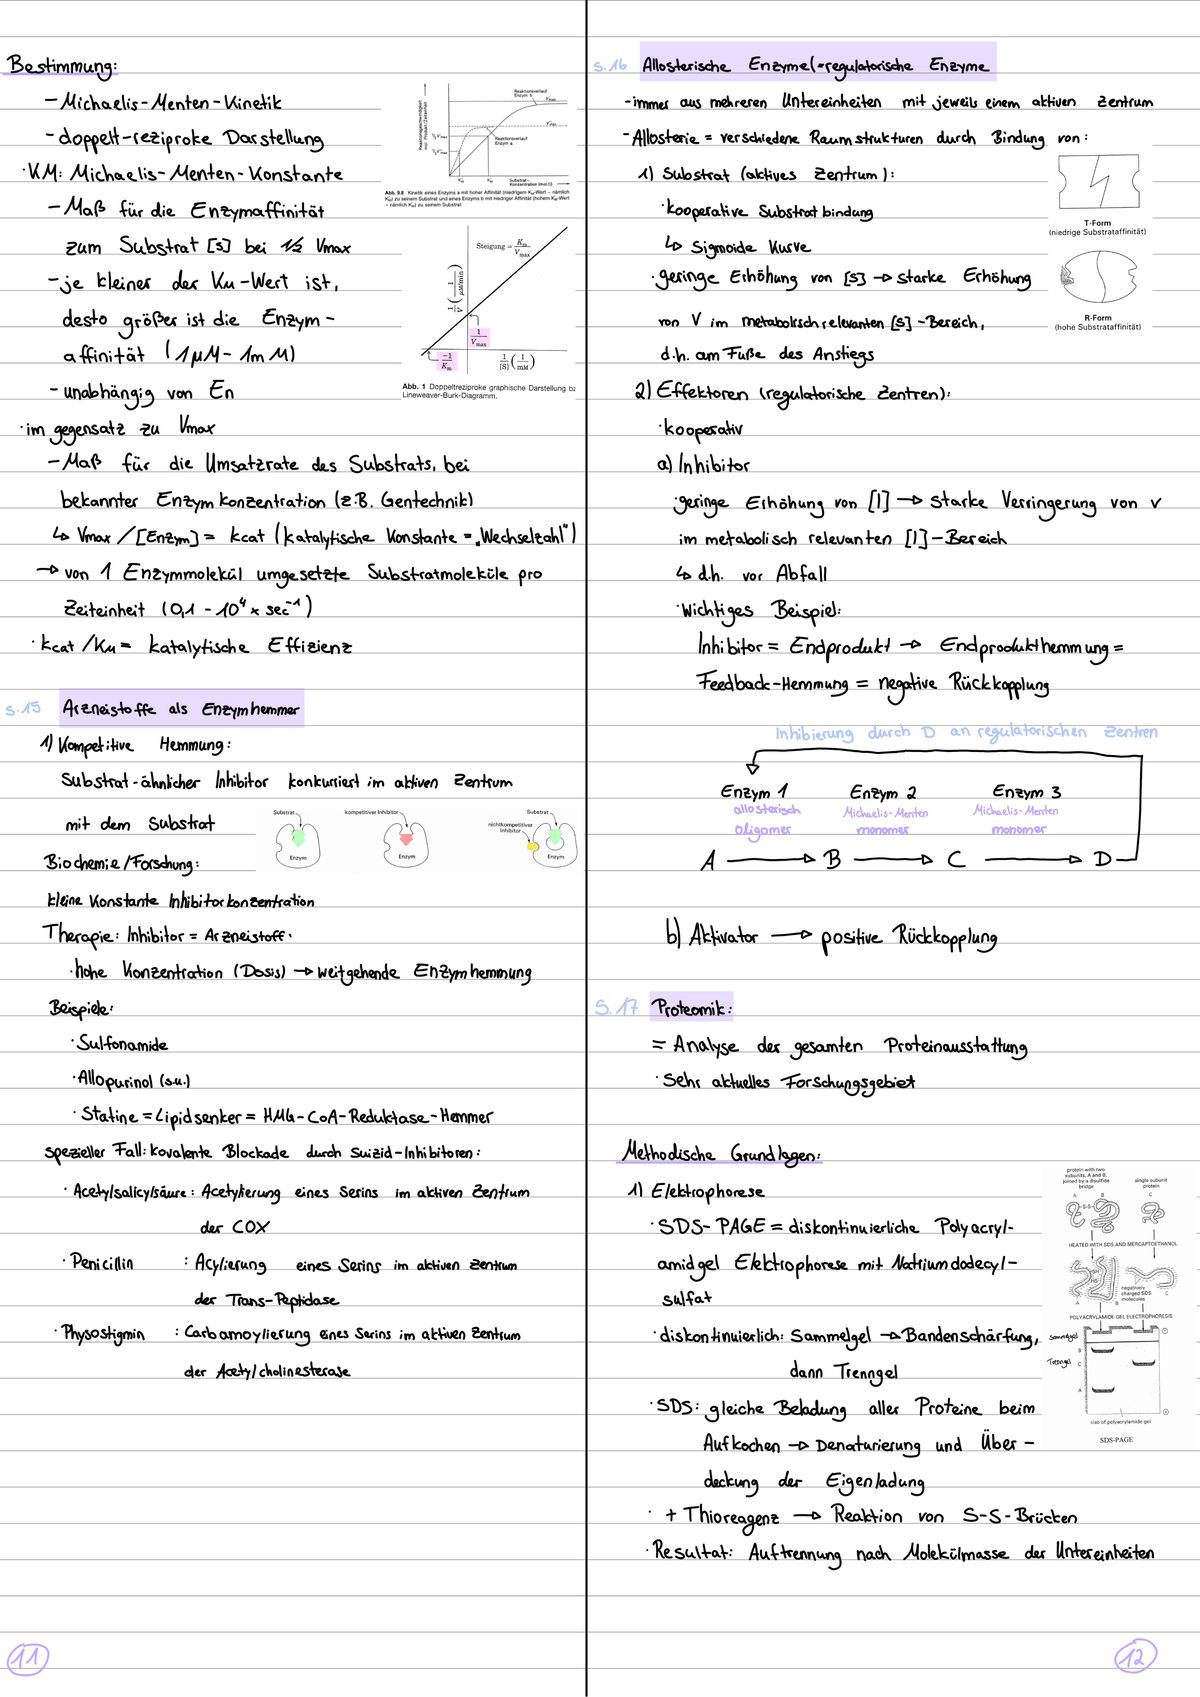 Bestimmung:
- Michaelis-Menten-Kinetik
- doppelt-reziproke Darstellung
· KM: Michaelis-Menten-Konstante
- Maß für die Enzymaffinität
zum Substrat [S] bei 1/2 Vmax
- je kleiner der KM-Wert ist,
desto größer ist die Enzym-
affinität (1µM - 1mM)
- unabhängig von En
· im gegensatz zu Vmax
- Maß für die Umsatzrate des Substrats, bei
bekannter Enzymkonzentration (z.B. Gentechnik)
↳ Vmax / [Enzym] = kcat (katalytische Konstante = „Wechselzahl")
→ von 1 Enzymmolekül umgesetzte Substratmoleküle pro
Zeiteinheit (0,1 - 10⁴ x sec⁻¹)
· kcat / KM = katalytische Effizienz
Reaktionsgeschwindigkeit
mol Produkt/Zeiteinheit
Reaktionsverlauf
Enzym b
Vmax
Vmax
½ Vmax
½ Vmax
Reaktionsverlauf
Enzym a
KM
KM
Substrat-
Konzentration [mol/l]
Abb. 9.8 Kinetik eines Enzyms a mit hoher Affinität (niedrigem KM-Wert – nämlich
KM) zu seinem Substrat und eines Enzyms b mit niedriger Affinität (hohem KM-Wert
– nämlich KM) zu seinem Substrat
Steigung = Km/Vmax
1/V (1/µM/min)
1/Vmax
-1/Km
1/[S] (1/mM)
Abb. 1 Doppeltreziproke graphische Darstellung bz
Lineweaver-Burk-Diagramm.
S.15 Arzneistoffe als Enzymhemmer
1) Kompetitive Hemmung:
Substrat-ähnlicher Inhibitor konkurriert im aktiven Zentrum
mit dem Substrat
Substrat
Enzym
kompetitiver Inhibitor
Enzym
Substrat
nichtkompetitiver
Inhibitor
Enzym
Biochemie/Forschung:
kleine Konstante Inhibitorkonzentration
Therapie: Inhibitor = Arzneistoff.
· hohe Konzentration (Dosis) → weitgehende Enzymhemmung
Beispiele:
· Sulfonamide
· Allopurinol (s.u.)
· Statine = Lipidsenker = HMG-CoA-Reduktase-Hemmer
spezieller Fall: kovalente Blockade durch Suizid-Inhibitoren:
· Acetylsalicylsäure: Acetylierung eines Serins im aktiven Zentrum
der COX
· Penicillin : Acylierung eines Serins im aktiven Zentrum
der Trans-Peptidase
· Physostigmin : Carbamoylierung eines Serins im aktiven Zentrum
der Acetylcholinesterase
11
S.16 Allosterische Enzyme(=regulatorische Enzyme
- immer aus mehreren Untereinheiten mit jeweils einem aktiven Zentrum
- Allosterie = verschiedene Raumstrukturen durch Bindung von:
1) Substrat (aktives Zentrum):
· kooperative Substratbindung
↳ Sigmoide Kurve
· geringe Erhöhung von [S] → starke Erhöhung
von V im metabolisch relevanten [S]-Bereich,
d.h. am Fuße des Anstiegs
T-Form
(niedrige Substrataffinität)
R-Form
(hohe Substrataffinität)
2) Effektoren (regulatorische Zentren):
· kooperativ
a) Inhibitor
· geringe Erhöhung von [I] → starke Verringerung von v
im metabolisch relevanten [I]-Bereich
↳ d.h. vor Abfall
· Wichtiges Beispiel:
Inhibitor = Endprodukt → Endprodukthemmung =
Feedback-Hemmung = negative Rückkopplung
Inhibierung durch D an regulatorischen Zentren
Enzym 1 Enzym 2 Enzym 3
allosterisch Michaelis-Menten Michaelis-Menten
oligomer monomer monomer
A → B → C → D
b) Aktivator → positive Rückkopplung
S.17 Proteomik:
= Analyse der gesamten Proteinausstattung
· Sehr aktuelles Forschungsgebiet
Methodische Grundlagen:
1) Elektrophorese
· SDS-PAGE = diskontinuierliche Polyacryl-
amidgel Elektrophorese mit Natriumdodecyl-
sulfat
· diskontinuierlich: Sammelgel → Bandenschärfung,
dann Trenngel
· SDS: gleiche Beladung aller Proteine beim
Aufkochen → Denaturierung und Über-
deckung der Eigenladung
· + Thioreagenz → Reaktion von S-S-Brücken
· Resultat: Auftrennung nach Molekülmasse der Untereinheiten
protein with two
subunits, A and B,
joined by a disulfide
bridge
single subunit
protein
A B C
S-S
HEATED WITH SDS AND MERCAPTOETHANOL
SH
HS
negatively
charged SDS
molecules
A B C
POLYACRYLAMIDE-GEL ELECTROPHORESIS
Sammelgel
Trengel
B
C
A
slab of polyacrylamide gel
SDS-PAGE
12